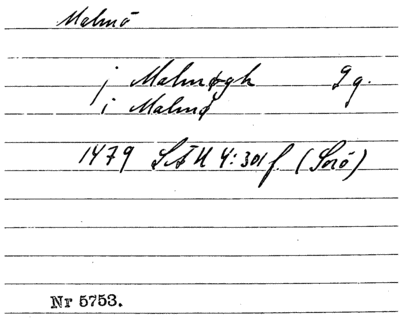 Malmö
j Malmøgh 2 g.
i Malmø
1479 SÄH 4:301 f. (Sorö)
Nr 5753.